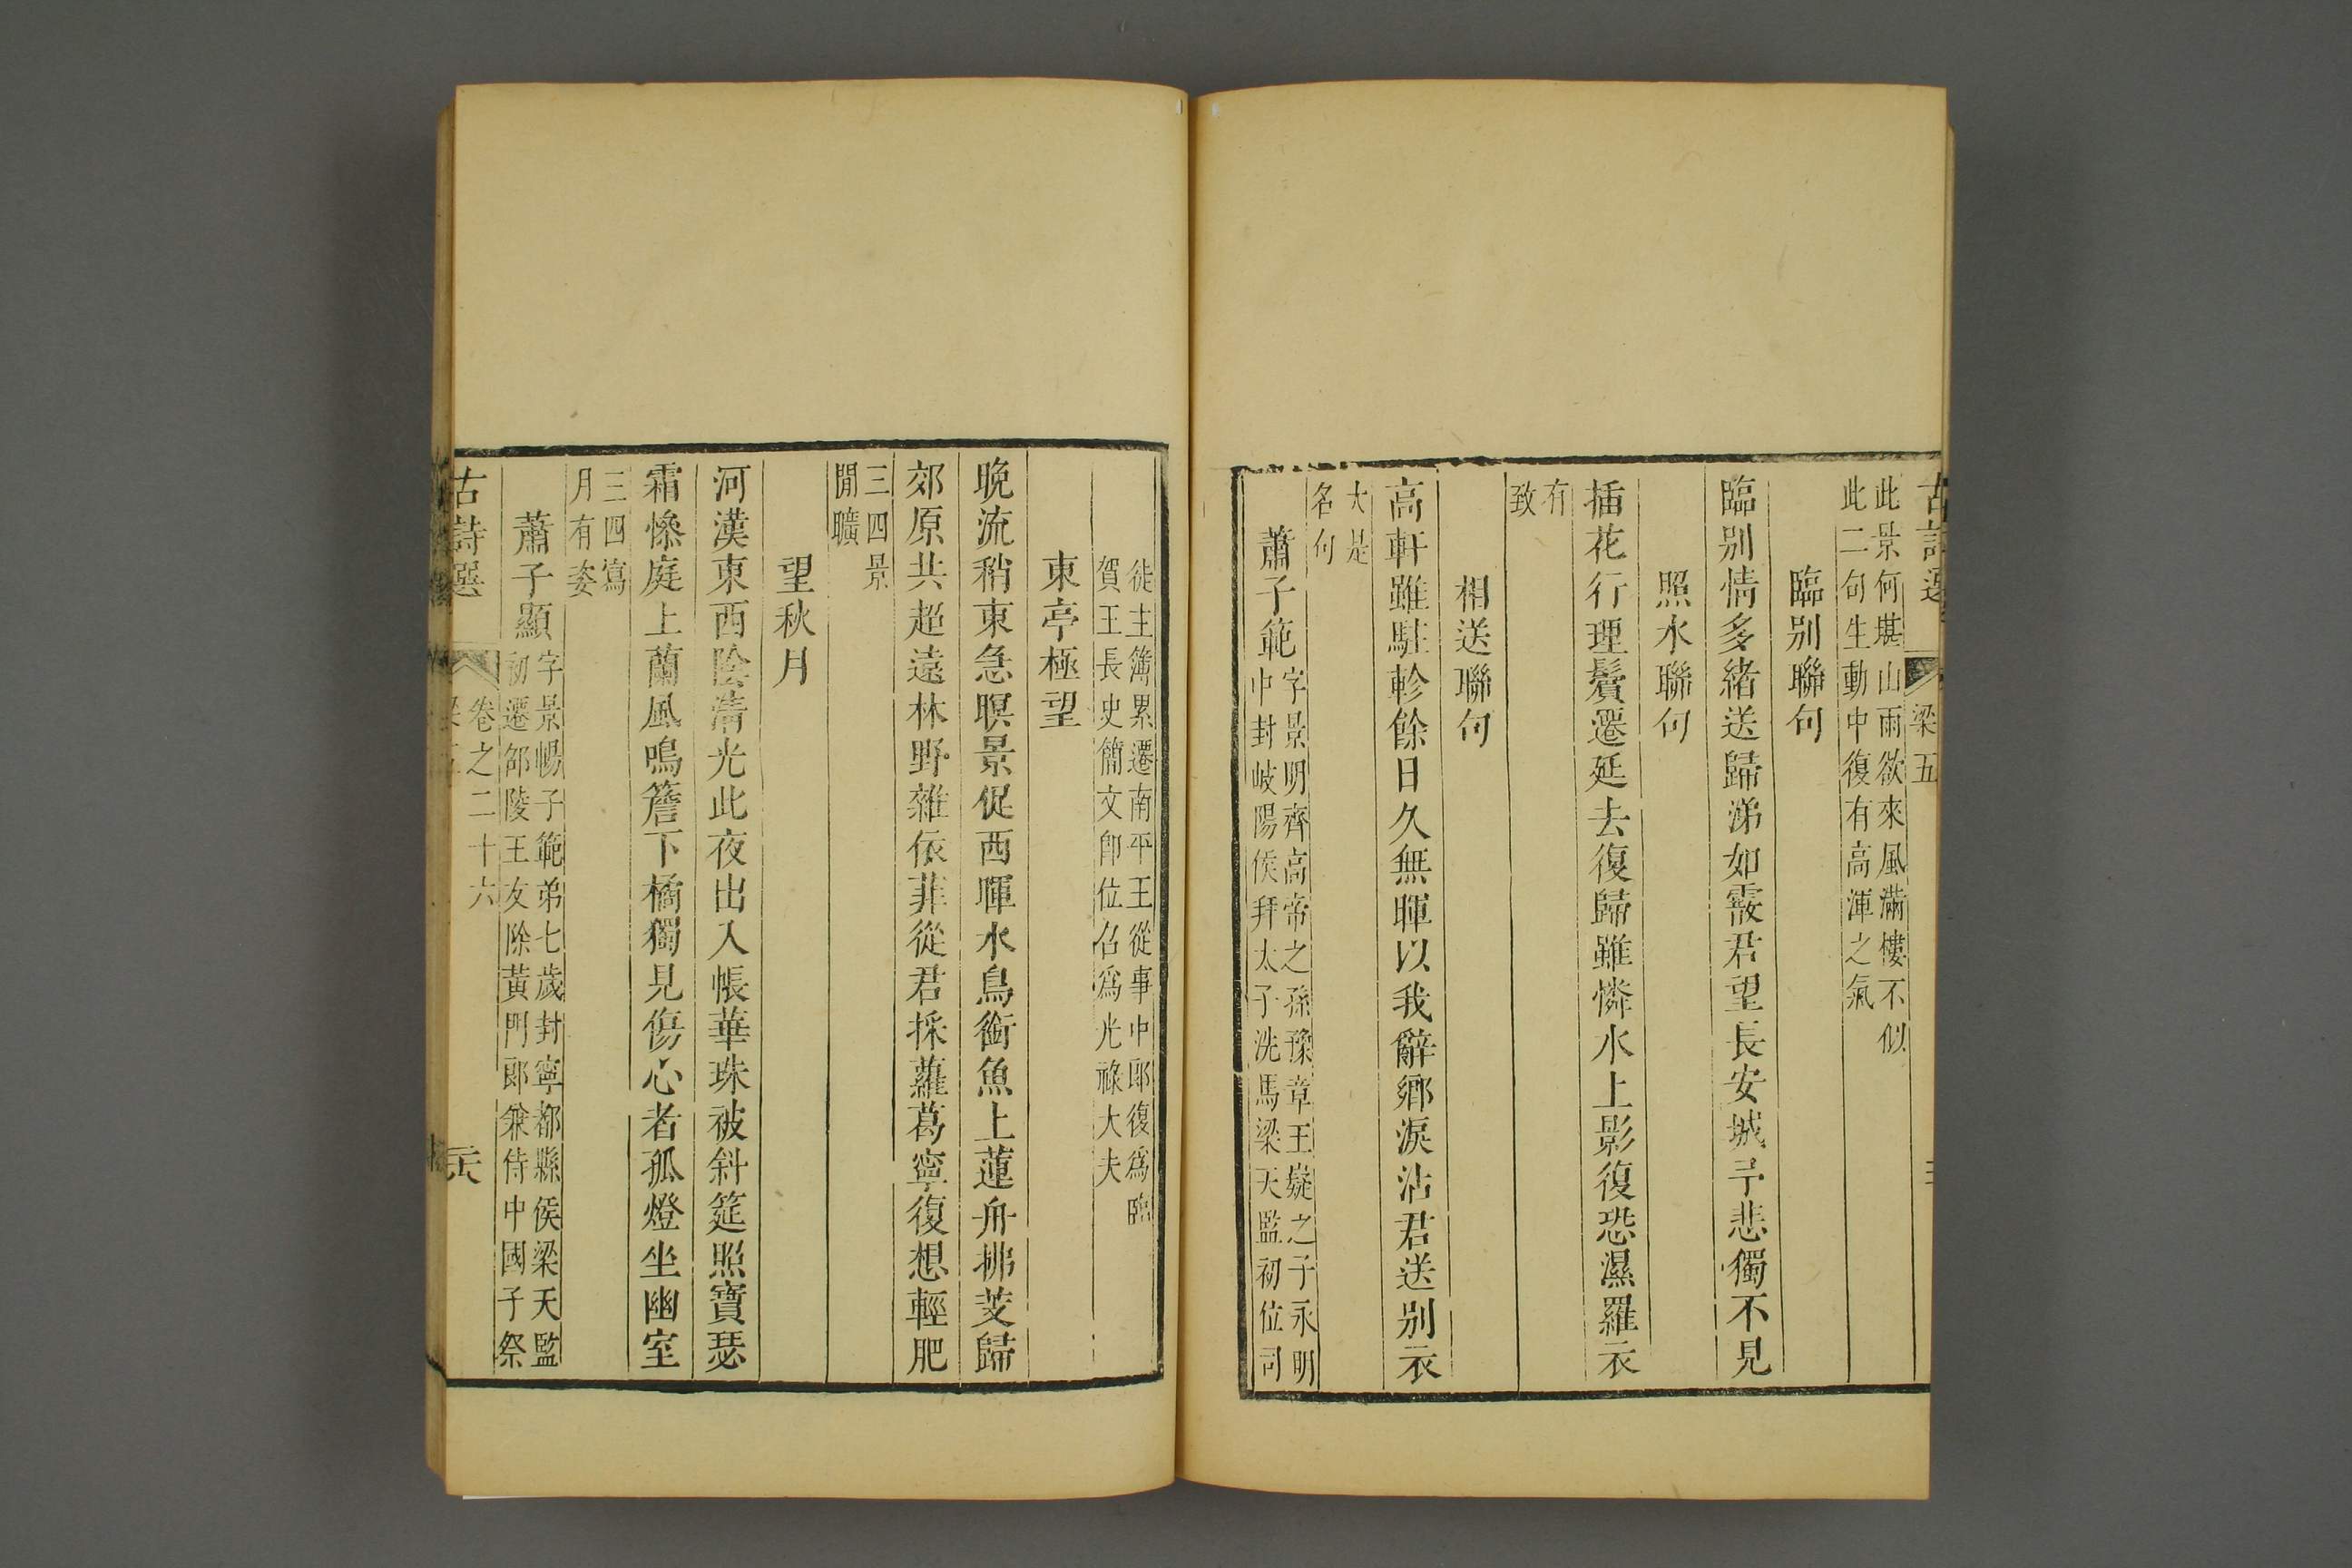 古詩選
梁五
此景何堪山雨欲來風滿樓不似
此二句生動中復有高渾之氣
臨别聯句
臨别情多緒送歸涕如霰君望長安城予悲獨不見
照水聯句
插花行理鬢遷延去復歸雖憐水上影復恐濕羅衣
有
致
相送聯句
高軒雖駐軫餘日久無暉以我辭鄉淚沾君送别衣
大是
名句
蕭子範字景明齊高帝之孫豫章王嶷之子永明
中封岐陽侯拜太子洗馬梁天監初位司
徒主簿累遷南平王從事中郎復爲臨
賀王長史簡文卽位召爲光祿大夫
東亭極望
晚流稍東急暝景促西暉水鳥銜魚上蓮舟拂芰歸
郊原共超遠林野雜依菲從君採蘿葛寧復想輕肥
三四景
閒曠
望秋月
河漢東西陰清光此夜出入帳華珠被斜筵照寶瑟
霜慘庭上蘭風鳴簷下橘獨見傷心者孤燈坐幽室
三四寫
月有姿
蕭子顯字景暢子範弟七歲封寧都縣侯梁天監
初遷邵陵王友除黃門郎兼侍中國子祭
古詩選
卷之二十六